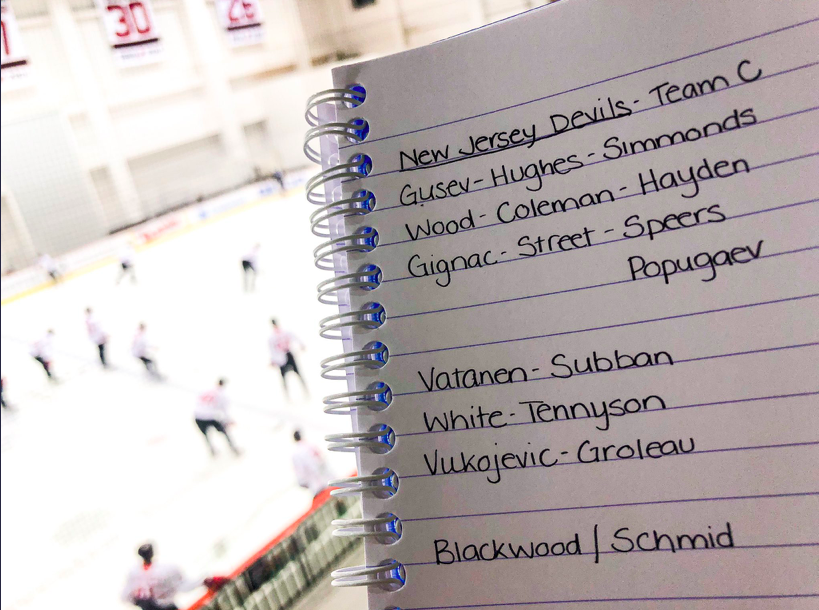 30
26
New Jersey Devils - Team C
Gusev - Hughes - Simmonds
Wood - Coleman - Hayden
Gignac - Street - Speers
Popugaev
Vatanen - Subban
White - Tennyson
Vukojevic - Groleau
Blackwood / Schmid